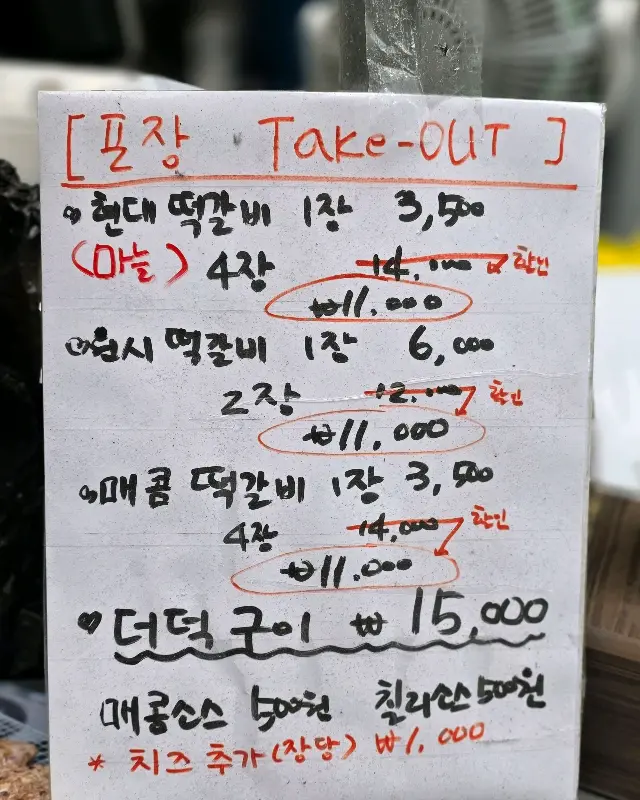 [포장 Take-OUT]
현대 떡갈비 1장 3,500
(마늘) 4장 14,000 할인
₩11.000
원시 떡갈비 1장 6,000
2장 12,000 할인
₩11,000
매콤 떡갈비 1장 3,500
4장 14,000 할인
₩11.000
♥더덕구이 ₩15,000
매콤소스 500원 칠리소스 500원
* 치즈 추가(장당) ₩1.000